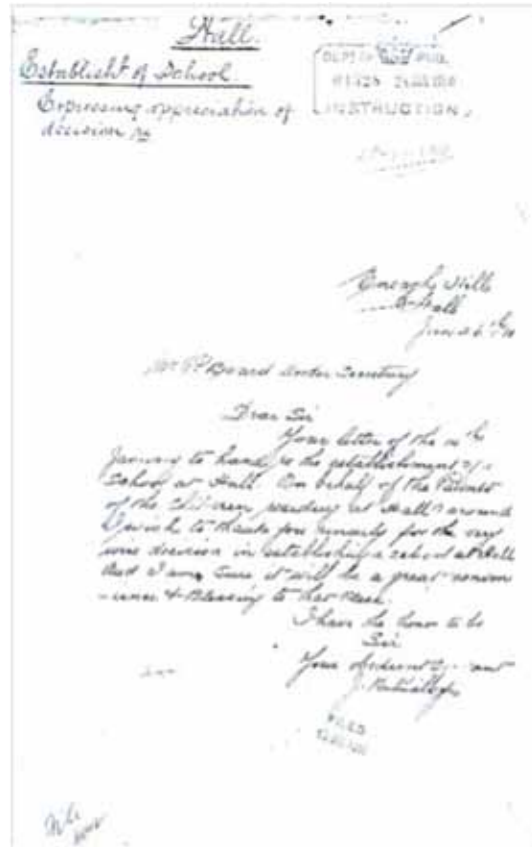 Hall.
Establisht of School
Expressing appreciation of
decision re
DEPT OF PUB.
INSTRUCTION.
Hall
Board Under Secretary
Dear Sir
Your letter of the
January to hand re the establishment of
School at Hall. On behalf of the Parents
of the Children residing at Hall & around
I wish to thank you sincerely for the very
wise decision in establishing a school at Hall
And I am sure it will be a great conven
-ience & Blessing to that Place.
I have the honor to be
Sir
Your obedient
FILED